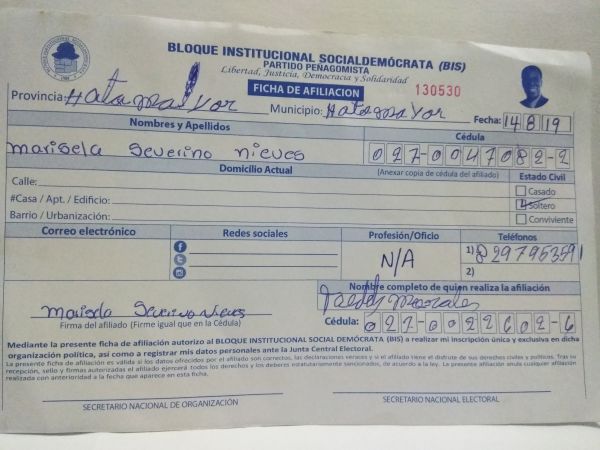 BLOQUE INSTITUCIONAL SOCIALDEMÓCRATA (BIS)
PARTIDO PEÑAGOMISTA
Libertad, Justicia, Democracia y Solidaridad
FICHA DE AFILIACION 130530
Provincia: Hato mayor Municipio: Hato mayor Fecha: 14 8 19
Nombres y Apellidos Cédula
marisela Severino nieves 027-0047082-2
Domicilio Actual (Anexar copia de cédula del afiliado) Estado Civil
Calle: Casado
#Casa / Apt. / Edificio: Soltero
Barrio / Urbanización: Conviviente
Correo electrónico Redes sociales Profesión/Oficio Teléfonos
N/A 1) 8297953591
2)
Nombre completo de quien realiza la afiliación
Morales
marisela Severino Nieves
Firma del afiliado (Firme igual que en la Cédula) Cédula: 027-0022602-6
Mediante la presente ficha de afiliación autorizo al BLOQUE INSTITUCIONAL SOCIAL DEMÓCRATA (BIS) a realizar mi inscripción única y exclusiva en dicha
organización política, así como a registrar mis datos personales ante la Junta Central Electoral.
La presente ficha de afiliación es válida si los datos ofrecidos por el afiliado son correctos, las declaraciones veraces y si el afiliado tiene el disfrute de sus derechos civiles y políticos. Tras su
recepción, sello y firmas autorizadas el afiliado ejercerá todos los derechos y los deberes estatutariamente sancionados, de acuerdo a la ley. La presente afiliación anula cualquier afiliación
realizada con anterioridad a la fecha que aparece en esta ficha.
SECRETARIO NACIONAL DE ORGANIZACIÓN SECRETARIO NACIONAL ELECTORAL